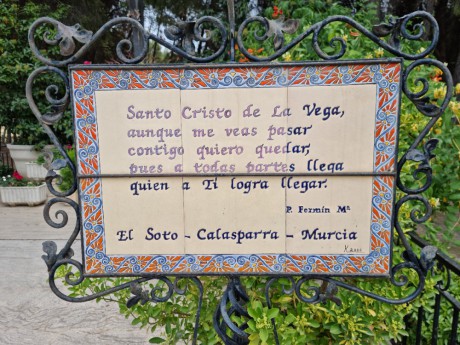 Santo Cristo de La Vega,
aunque me veas pasar
contigo quiero quedar,
pues a todas partes llega
quien a Ti logra llegar.
P. Fermín Mª
El Soto - Calasparra - Murcia